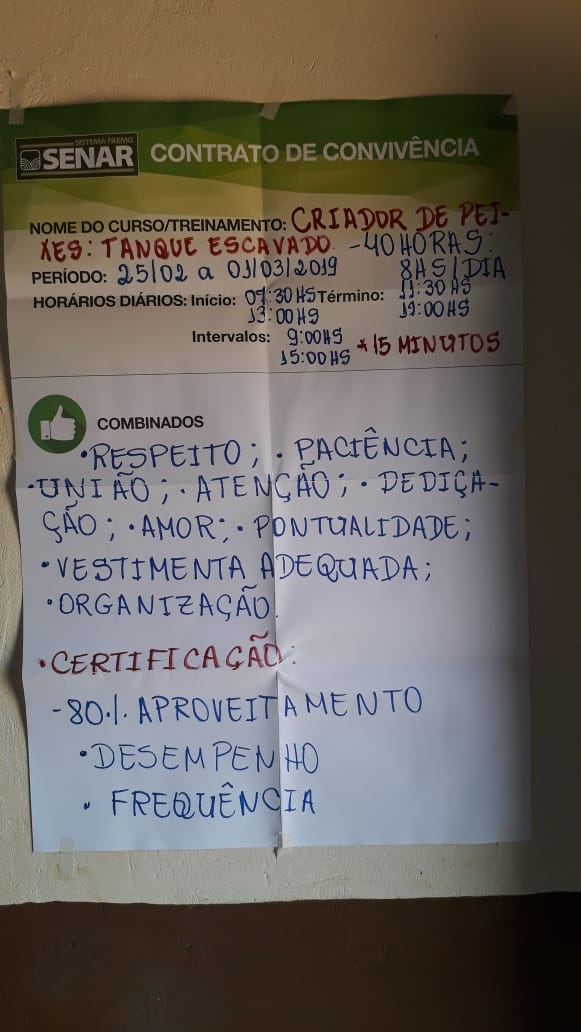 SISTEMA FAEMG
SENAR
CONTRATO DE CONVIVÊNCIA
NOME DO CURSO/TREINAMENTO: CRIADOR DE PEI-
XES: TANQUE ESCAVADO. - 40 HORAS:
8HS/DIA
PERÍODO: 25/02 a 01/03/2019
HORÁRIOS DIÁRIOS: Início: 07:30 HS Término: 11:30 HS
13:00 HS 19:00 HS
Intervalos: 9:00HS
15:00 HS * 15 MINUTOS
COMBINADOS
• RESPEITO; • PACIÊNCIA;
• UNIÃO; • ATENÇÃO; • DEDICA-
ÇÃO; • AMOR; • PONTUALIDADE;
• VESTIMENTA ADEQUADA;
• ORGANIZAÇÃO.
• CERTIFICAÇÃO:
- 80% APROVEITAMENTO
• DESEMPENHO
• FREQUÊNCIA